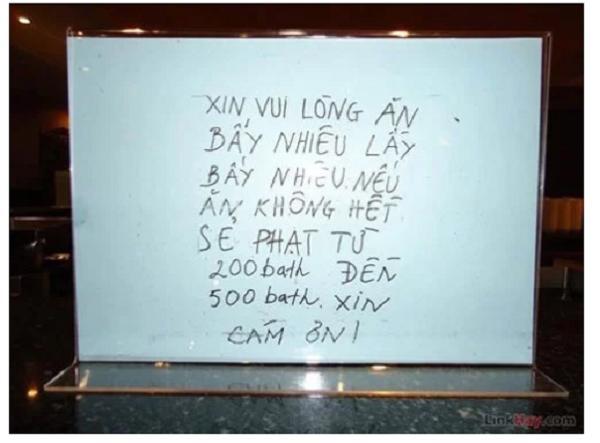 XIN VUI LÒNG ĂN
BẤY NHIÊU LẤY
BẤY NHIÊU. NẾU
ĂN KHÔNG HẾT
SẼ PHẠT TỪ
200 bath ĐẾN
500 bath. XIN
CÁM ƠN!
LinkHay.com